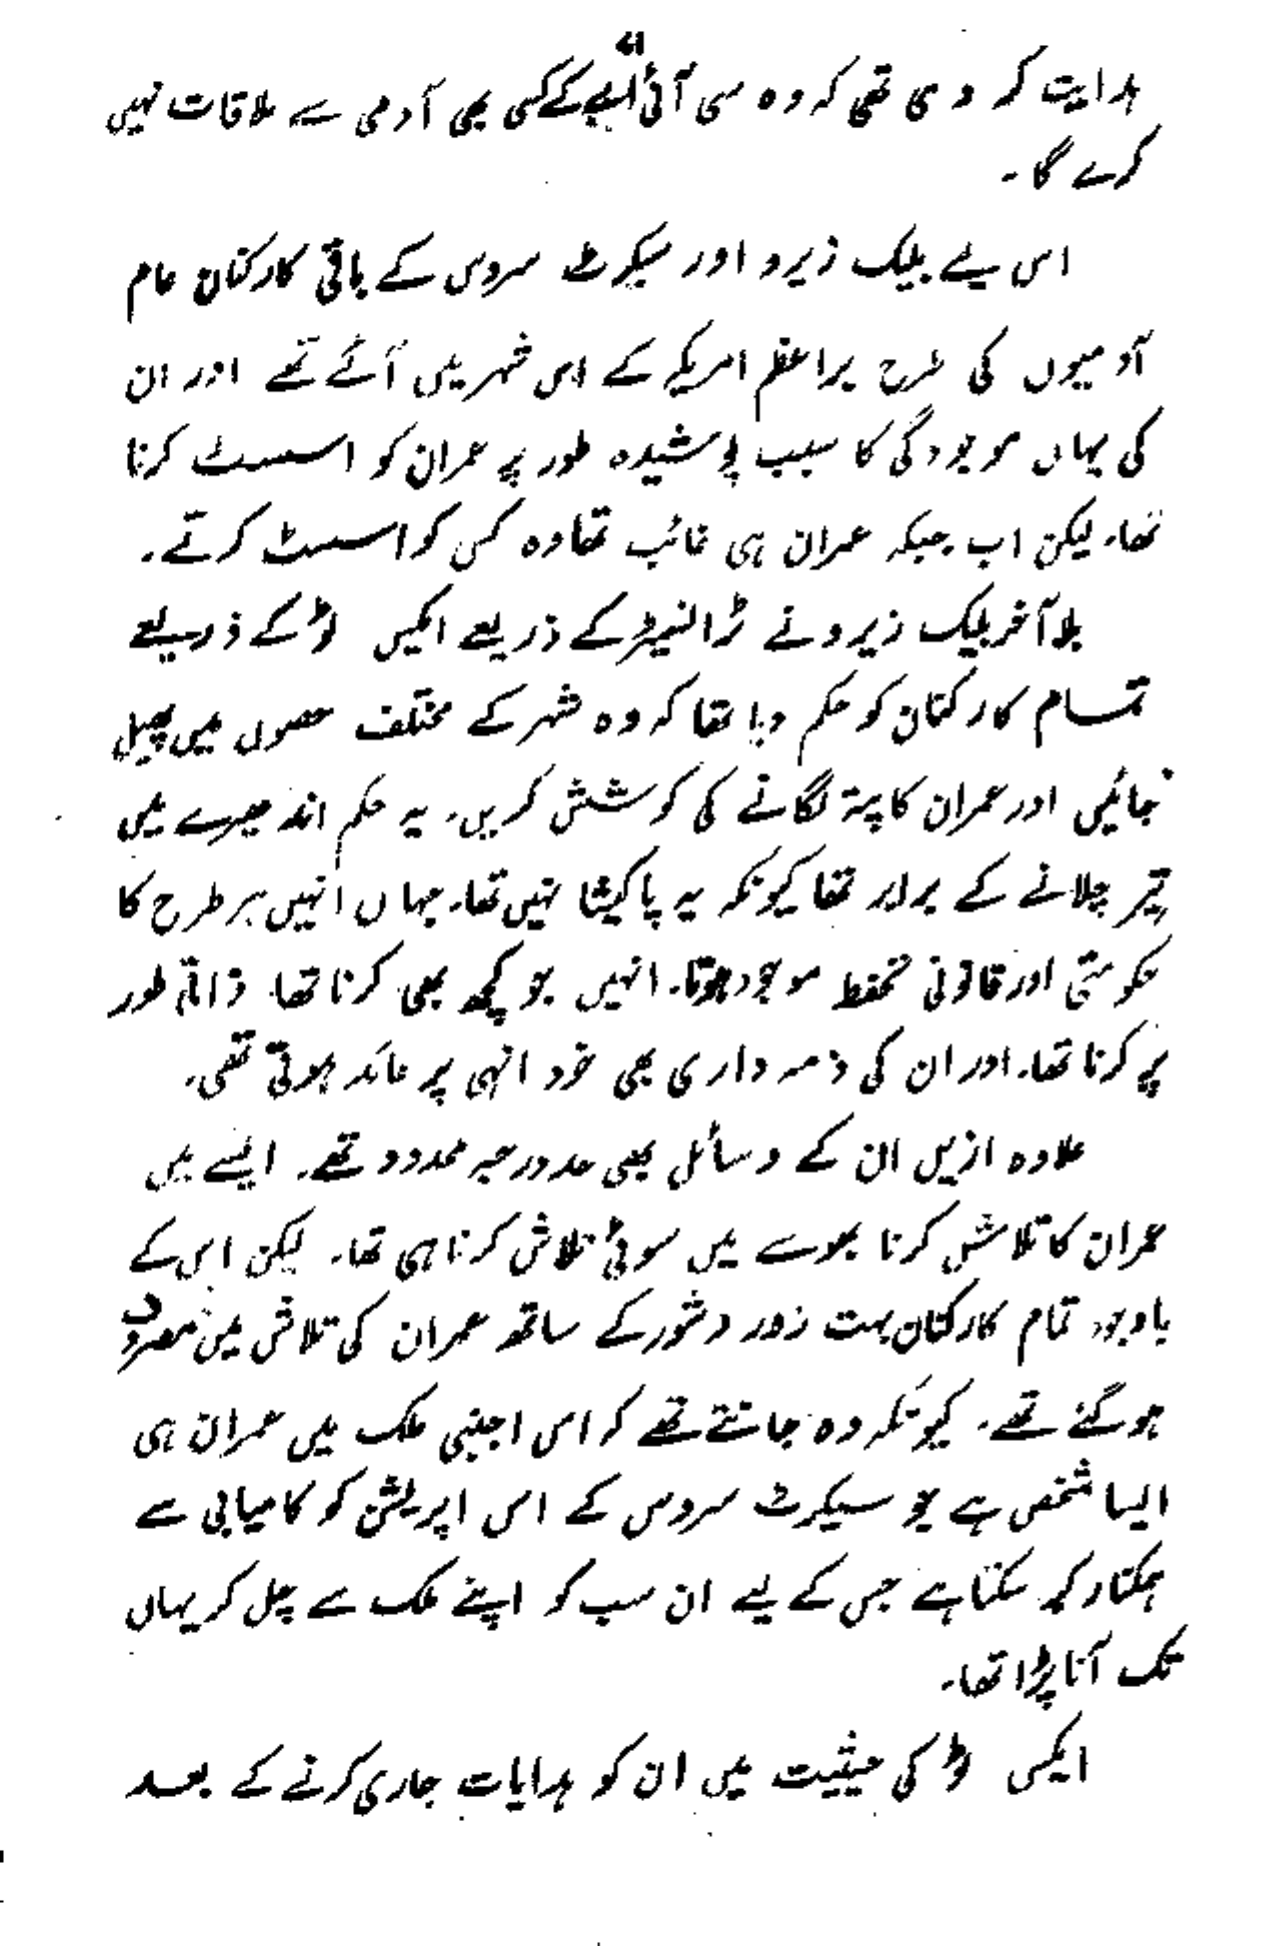 61
ہدایت کر دی تھی کہ وہ سی آئی اے کے کسی بھی آدمی سے ملاقات نہیں
کرے گا۔
اس لیے بلیک زیرو اور سیکرٹ سروس کے باقی کارکنان عام
آدمیوں کی طرح براعظم امریکہ کے اس شہر میں آئے تھے اور ان
کی یہاں موجودگی کا سبب پوشیدہ طور پر عمران کو اسسٹ کرنا
تھا۔ لیکن اب جبکہ عمران ہی غائب تھا وہ کس کو اسسٹ کرتے۔
بلآخر بلیک زیرو نے ٹرانسمیٹر کے ذریعے ایکس ٹو کے ذریعے
تمام کارکنان کو حکم دیا تھا کہ وہ شہر کے مختلف حصوں میں پھیل
جائیں اور عمران کا پتہ لگانے کی کوشش کریں۔ یہ حکم اندھیرے میں
تیر چلانے کے برابر تھا کیونکہ یہ پاکیشا نہیں تھا۔ جہاں انہیں ہر طرح کا
حکومتی اور قانونی تحفظ موجود ہوتا۔ انہیں جو کچھ بھی کرنا تھا ذاتی طور
پر کرنا تھا۔ اور ان کی ذمہ داری بھی خود انہی پر عائد ہوتی تھی۔
علاوہ ازیں ان کے وسائل بھی حد درجہ محدود تھے۔ ایسے میں
عمران کا تلاش کرنا بھوسے میں سوئی تلاش کرنا ہی تھا۔ لیکن اس کے
باوجود تمام کارکنان بہت زور و شور کے ساتھ عمران کی تلاش میں مصروف
ہو گئے تھے۔ کیونکہ وہ جانتے تھے کہ اس اجنبی ملک میں عمران ہی
ایسا شخص ہے جو سیکرٹ سروس کے اس اپریشن کو کامیابی سے
ہمکنار کر سکتا ہے جس کے لیے ان سب کو اپنے ملک سے چل کر یہاں
تک آنا پڑا تھا۔
ایکس ٹو کی حیثیت میں ان کو ہدایات جاری کرنے کے بعد